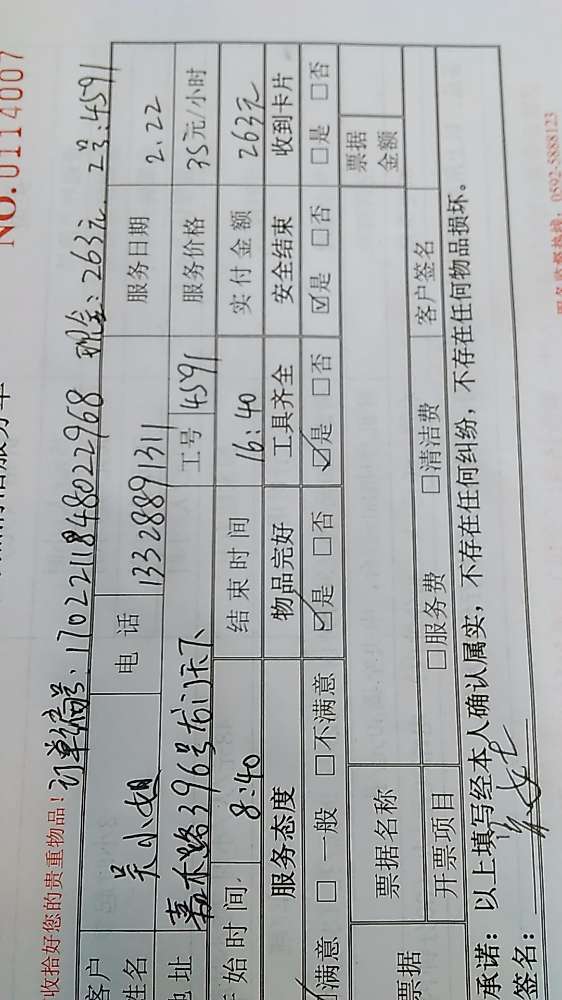 NO.0114007
收拾好您的贵重物品！
订单编号：1702211848022968 现金：263元 工号：4591
客户姓名 吴小姐 电话 13328891311 服务日期 2.22
地址 嘉禾路396号龙门天下 工号 4591 服务价格 35元/小时
开始时间 8:40 结束时间 16:40 实付金额 263元
服务态度 物品完好 工具齐全 安全结束 收到卡片
☑满意 □一般 □不满意 ☑是 □否 ☑是 □否 ☑是 □否 □是 □否
票据 票据名称 票据金额
开票项目 □服务费 □清洁费 客户签名
承诺：以上填写经本人确认属实，不存在任何纠纷，不存在任何物品损坏。
签名：
服务监督热线：0592-5888123